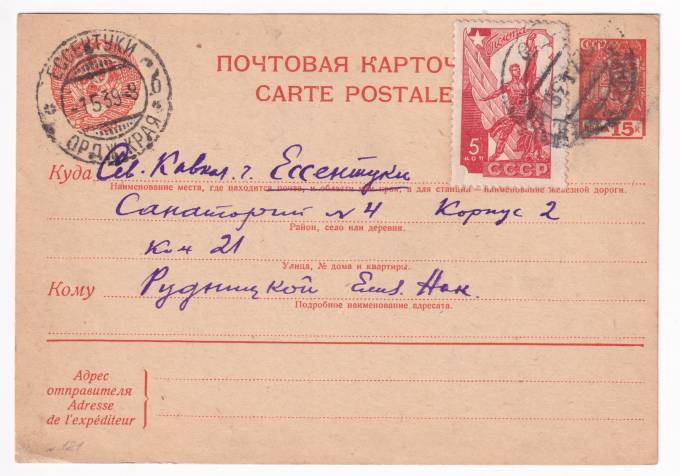 ЕССЕНТУКИ
-1.5.39
ОРДЖ. КРАЯ
ПОЧТОВАЯ КАРТОЧ
CARTE POSTALE
почта
5 КОП
СССР
СССР
15 К
Куда Сев. Кавказ. г. Ессентуки
Наименование места, где находится почта, и области или края, а для станции — наименование железной дороги.
Санаторий № 4 Корпус 2
Район, село или деревня.
Ком 21
Улица, № дома и квартиры.
Кому Рудницкой
Подробное наименование адресата.
Адрес
отправителя
Adresse
de l'expéditeur